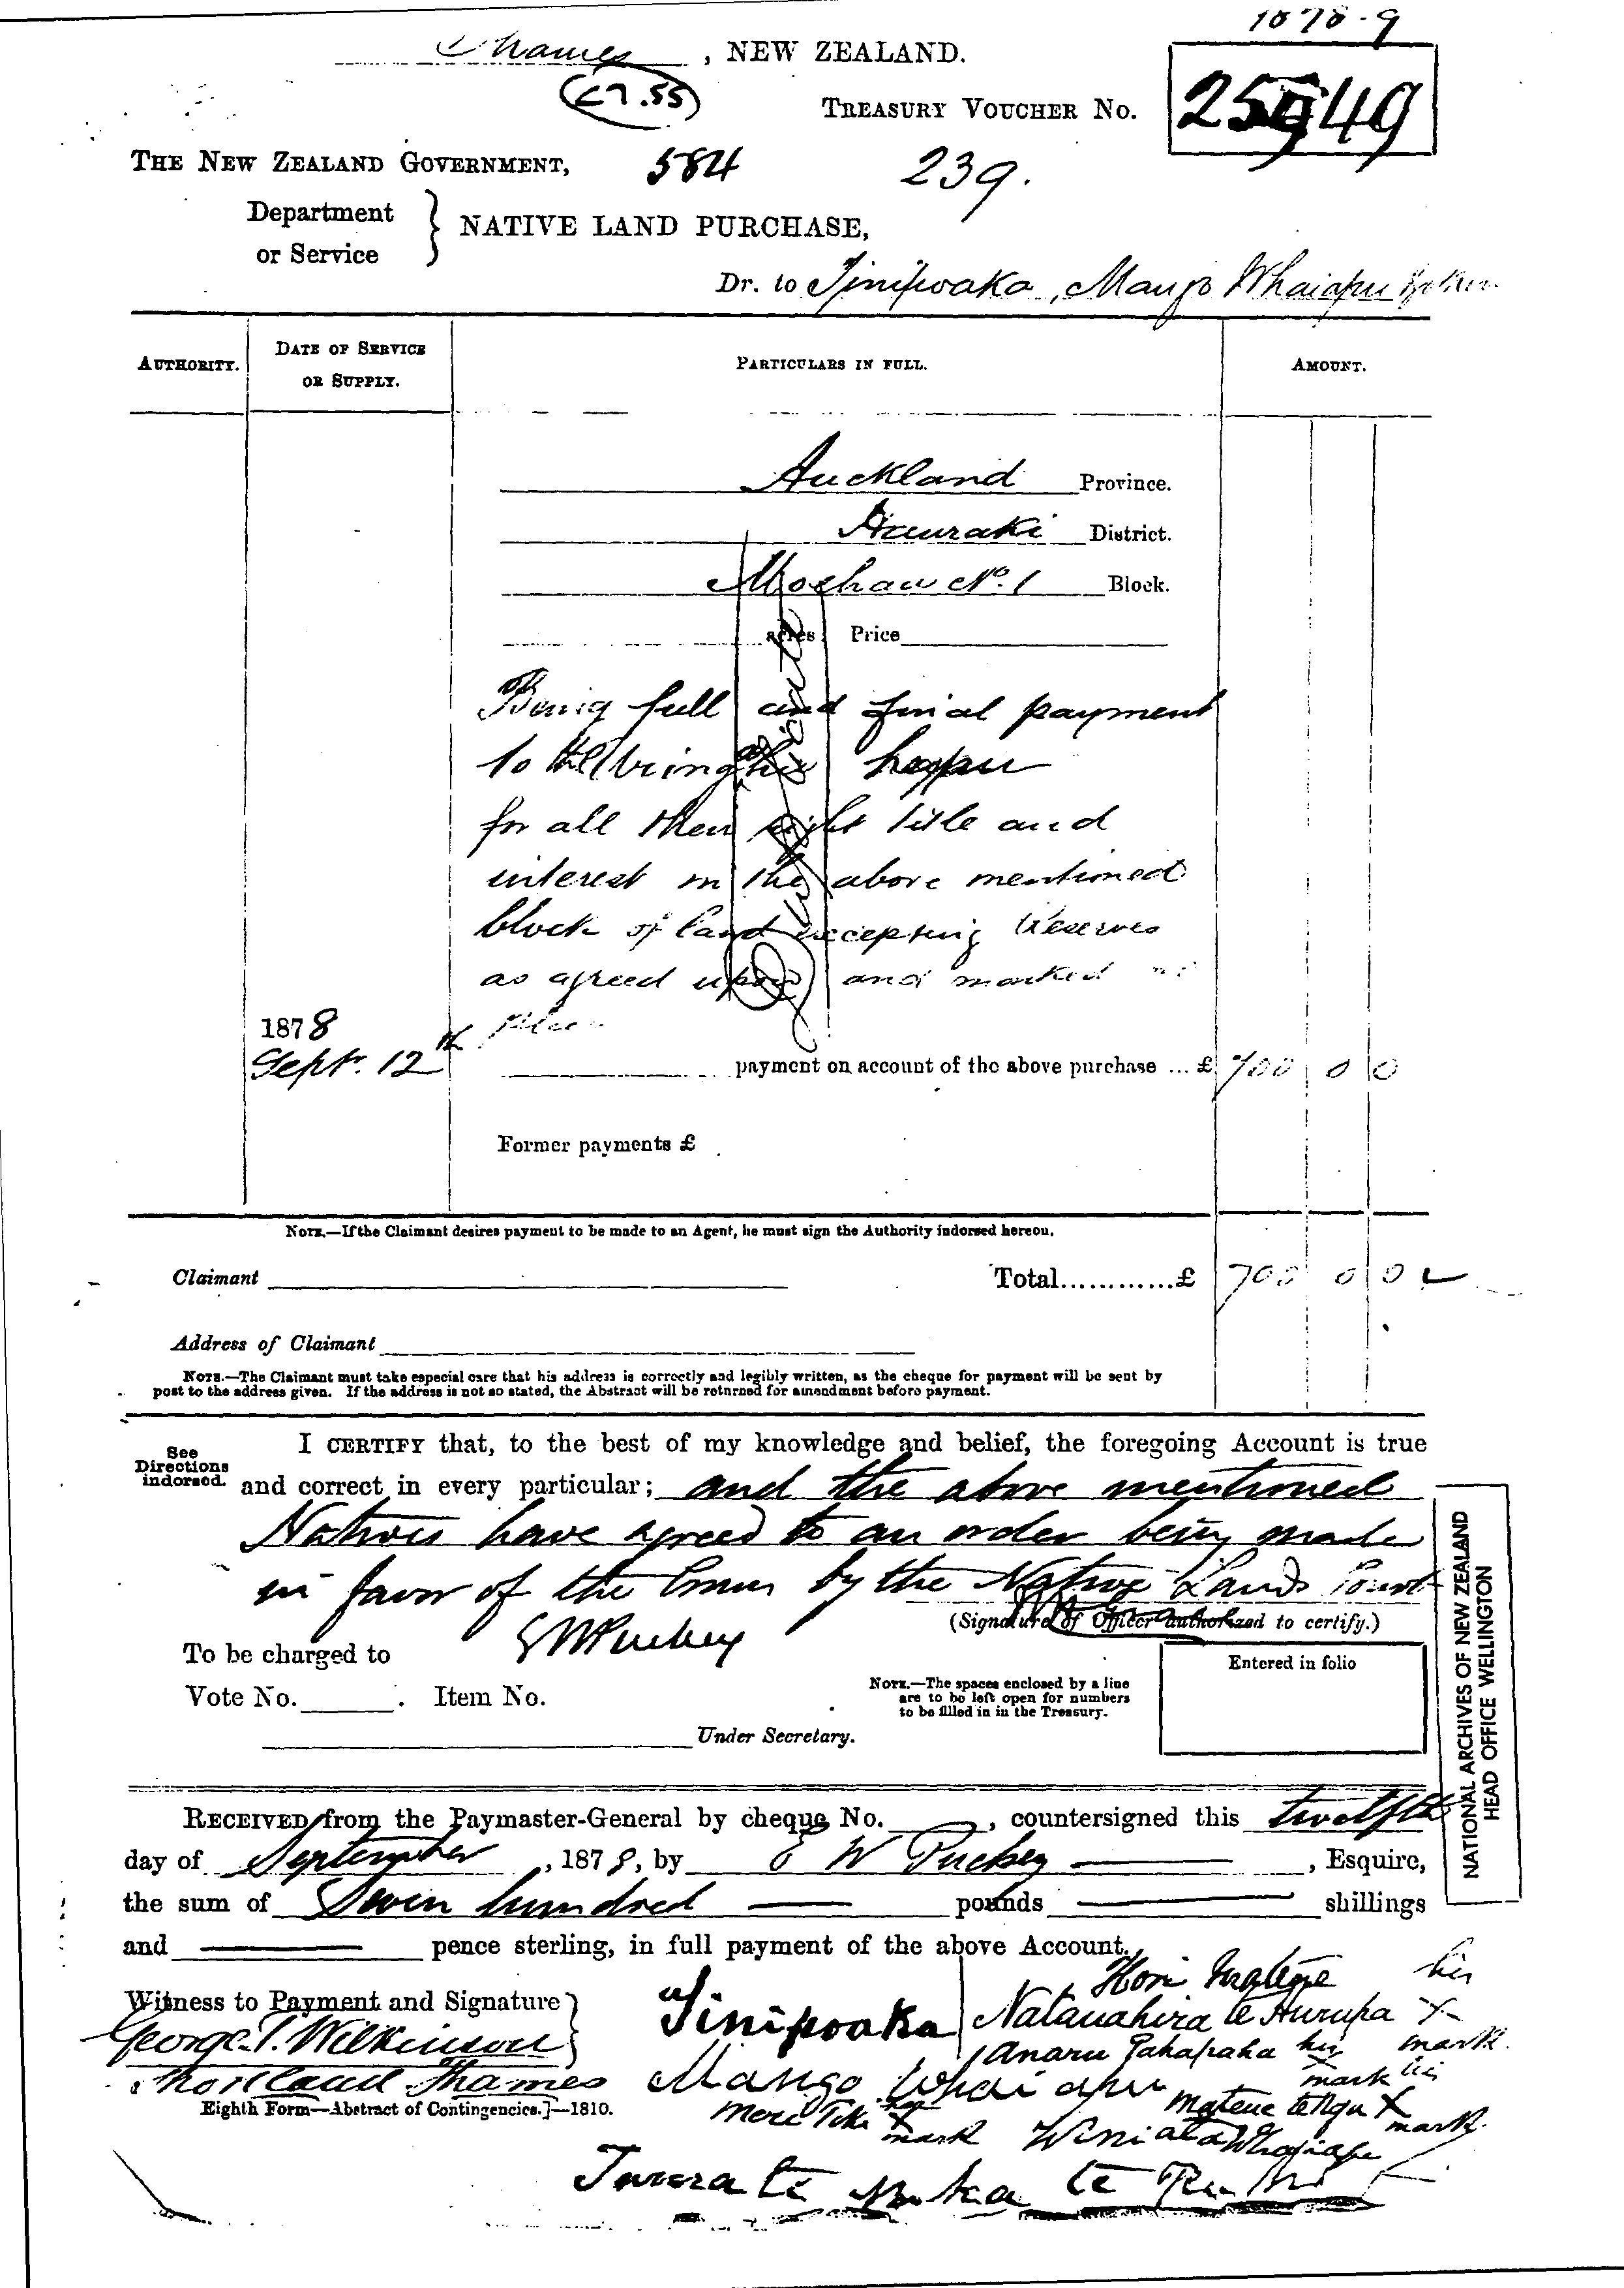 1878-9
Thames, NEW ZEALAND.
£7.55
TREASURY VOUCHER No. 25949
THE NEW ZEALAND GOVERNMENT, 584 239.
Department or Service } NATIVE LAND PURCHASE,
Dr. to Tinipoaka, Mango Whaiapu
AUTHORITY. DATE OF SERVICE OR SUPPLY. PARTICULARS IN FULL. AMOUNT.
Auckland Province.
Hauraki District.
Moehau No. 1 Block.
acres Price
Being full and final payment
to the hapu
for all their right title and
interest in the above mentioned
block of land excepting Reserves
as agreed upon and marked
1878
Sept. 12th
payment on account of the above purchase ... £ 700 0 0
Former payments £
NOTE.—If the Claimant desires payment to be made to an Agent, he must sign the Authority indorsed hereon.
Claimant Total............£ 700 0 0
Address of Claimant
NOTE.—The Claimant must take especial care that his address is correctly and legibly written, as the cheque for payment will be sent by
post to the address given. If the address is not so stated, the Abstract will be returned for amendment before payment.
See Directions indorsed.
I CERTIFY that, to the best of my knowledge and belief, the foregoing Account is true
and correct in every particular; and the above mentioned
Natives have agreed to an order being made
in favor of the Crown by the Native Lands Court
(Signature of Officer authorized to certify.)
To be charged to EWPuckey
Vote No. . Item No.
NOTE.—The spaces enclosed by a line
are to be left open for numbers
to be filled in in the Treasury.
Entered in folio
Under Secretary.
NATIONAL ARCHIVES OF NEW ZEALAND
HEAD OFFICE WELLINGTON
RECEIVED from the Paymaster-General by cheque No. , countersigned this twelfth
day of September, 1878, by E W Puckey, Esquire,
the sum of Seven hundred pounds shillings
and pence sterling, in full payment of the above Account.
Witness to Payment and Signature }
George T. Wilkinson
Shortland Thames
Eighth Form—Abstract of Contingencies.]—1810.
Hori Matene his
Tinipoaka Natanahira te Aurupa X mark
Anaru Pahapaha his X mark
Mango Whaiapu Matene te Ngu his X mark
Mere Teke her X mark Winiata Whaiapu